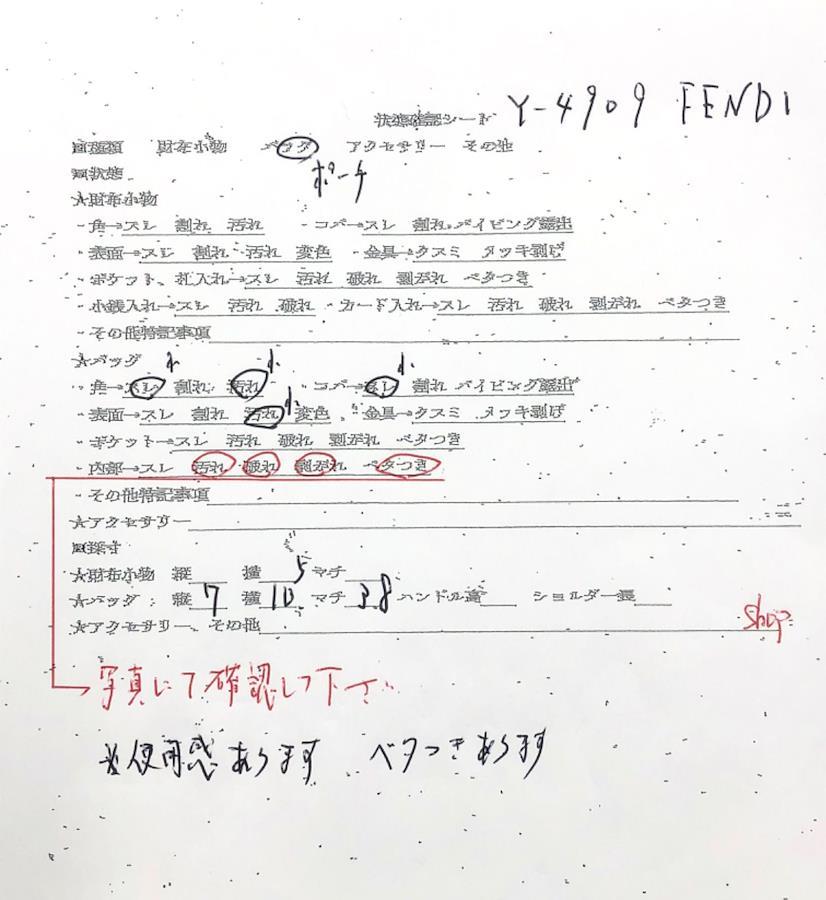 状態確認シート Y-4909 FENDI
■種類 財布小物 バッグ アクセサリー その他
■状態 ポーチ
★財布小物
・角→スレ 割れ 汚れ ・コバ→スレ 割れ パイピング露出
・表面→スレ 割れ 汚れ 変色 ・金具→クスミ メッキ剥げ
・ポケット、札入れ→スレ 汚れ 破れ 剥がれ ベタつき
・小銭入れ→スレ 汚れ 破れ ・カード入れ→スレ 汚れ 破れ 剥がれ ベタつき
・その他特記事項
★バッグ
・角→スレ 割れ 汚れ ・コバ→スレ 割れ パイピング露出
・表面→スレ 割れ 汚れ 変色 ・金具→クスミ メッキ剥げ
・ポケット→スレ 汚れ 破れ 剥がれ ベタつき
・内部→スレ 汚れ 破れ 剥がれ ベタつき
・その他特記事項
★アクセサリー
■採寸
★財布小物 縦 横 マチ
★バッグ : 縦 7 横 10.5 マチ 3.8 ハンドル高 ショルダー長
★アクセサリー、その他
shop
写真にて確認して下さい
※使用感あります ベタつきあります